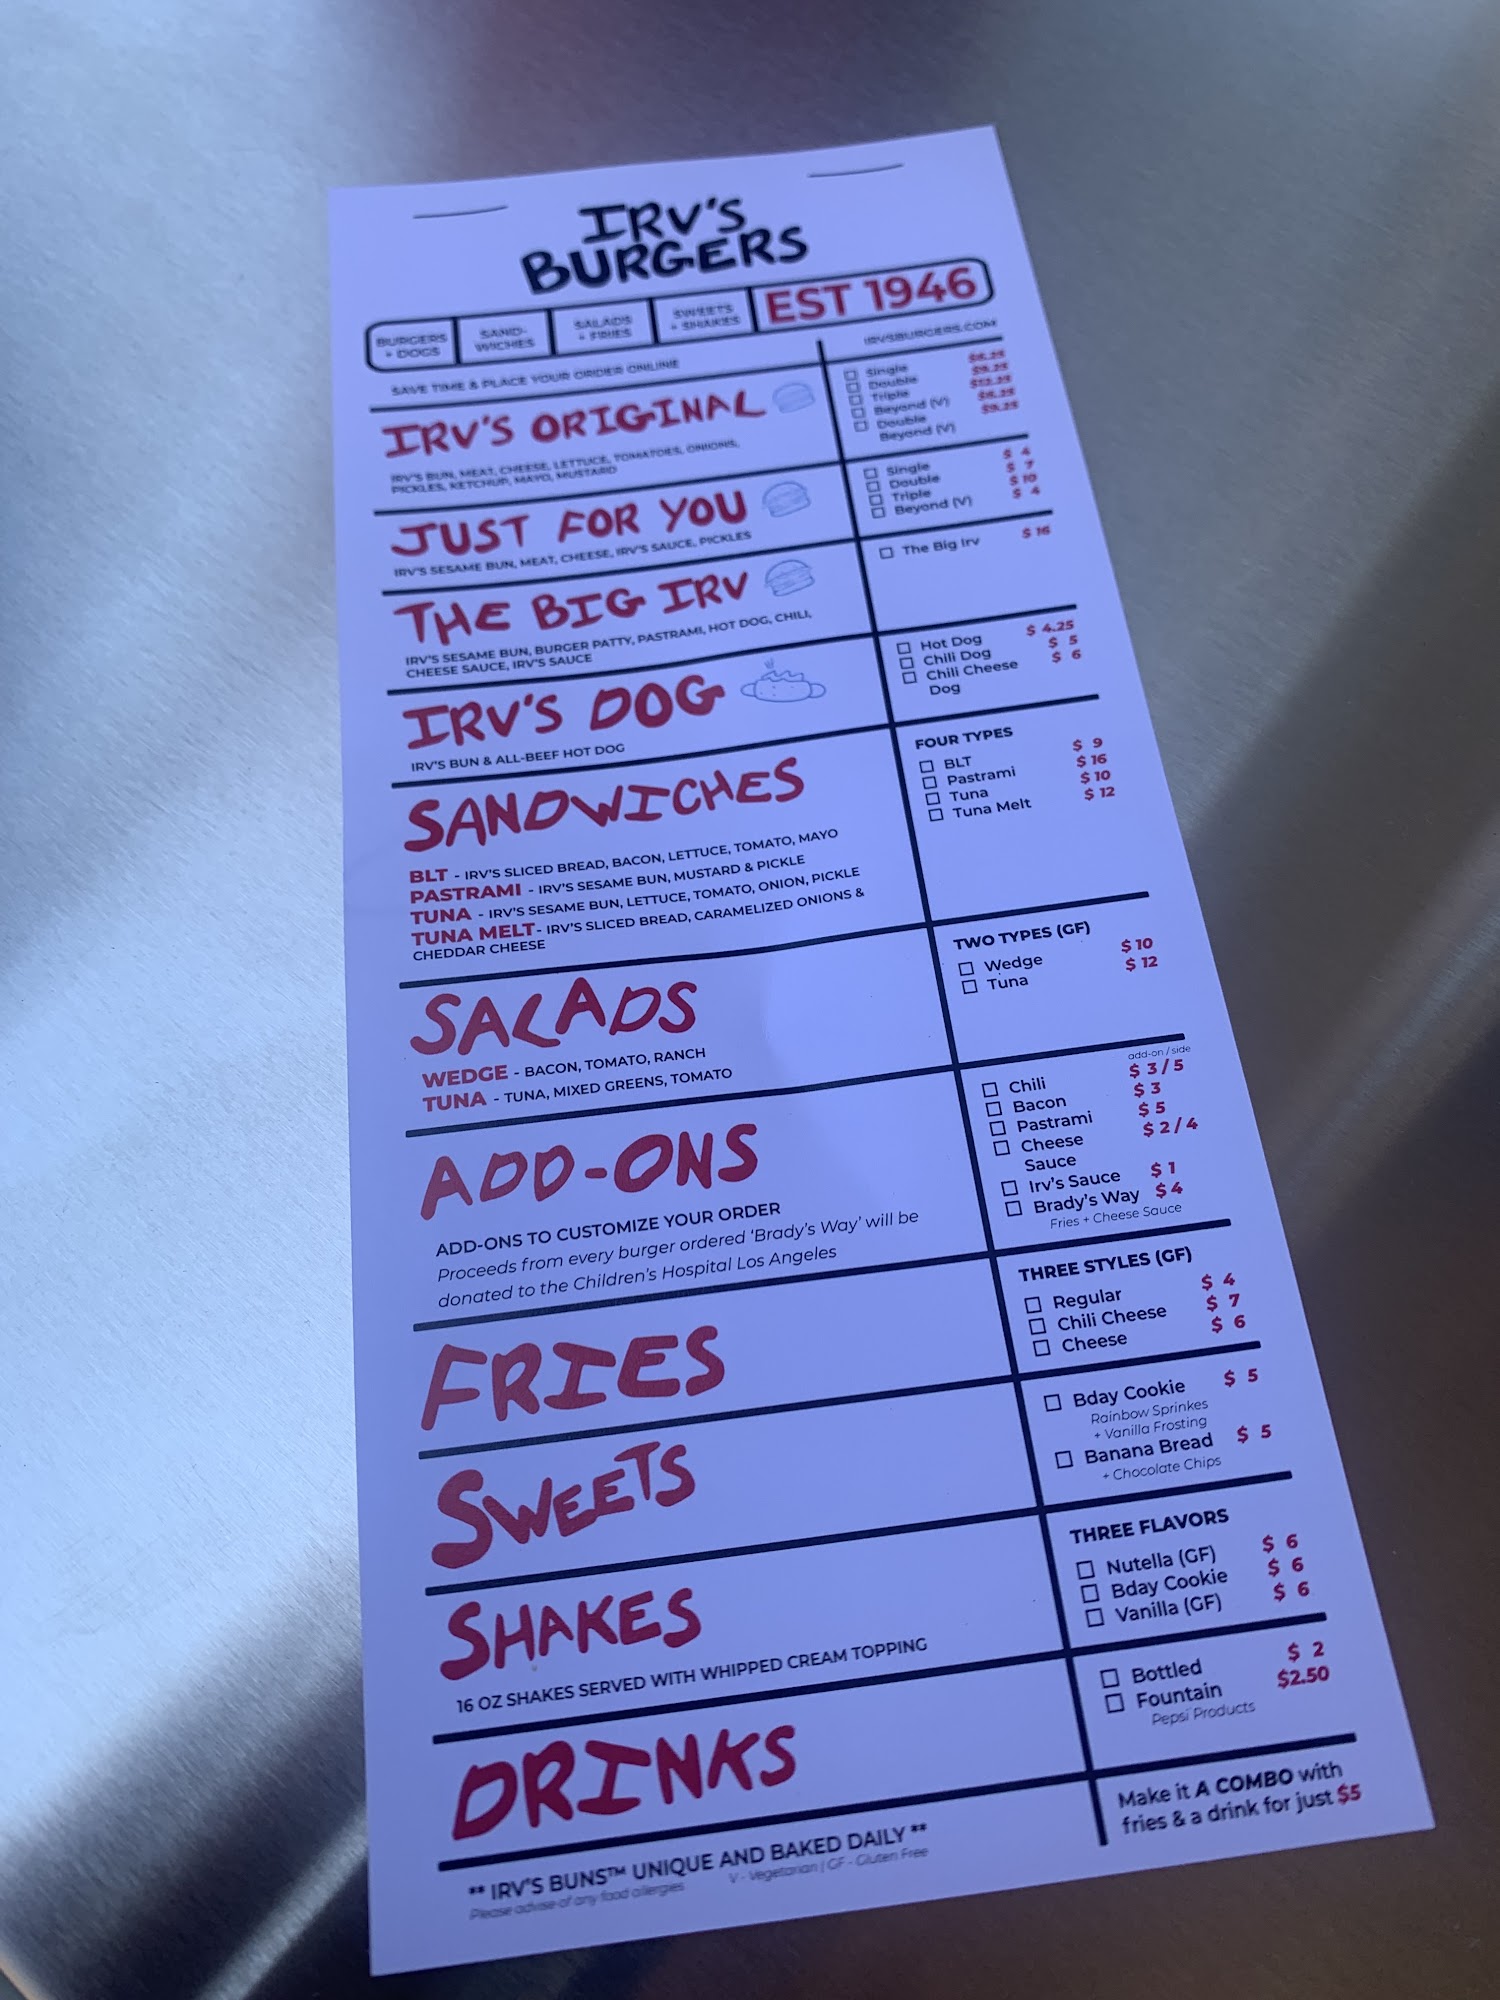 IRV'S
BURGERS
BURGERS
+ DOGS
SAND-
WICHES
SALADS
+ FRIES
SWEETS
+ SHAKES
EST 1946
SAVE TIME & PLACE YOUR ORDER ONLINE
IRVSBURGERS.COM
IRV'S ORIGINAL
IRV'S BUN, MEAT, CHEESE, LETTUCE, TOMATOES, ONIONS,
PICKLES, KETCHUP, MAYO, MUSTARD
Single $6.25
Double $9.25
Triple $12.25
Beyond (V) $6.25
Double $9.25
Beyond (V)
JUST FOR YOU
IRV'S SESAME BUN, MEAT, CHEESE, IRV'S SAUCE, PICKLES
Single $ 4
Double $ 7
Triple $ 10
Beyond (V) $ 4
THE BIG IRV
IRV'S SESAME BUN, BURGER PATTY, PASTRAMI, HOT DOG, CHILI,
CHEESE SAUCE, IRV'S SAUCE
The Big Irv $ 16
IRV'S DOG
IRV'S BUN & ALL-BEEF HOT DOG
Hot Dog $ 4.25
Chili Dog $ 5
Chili Cheese $ 6
Dog
SANDWICHES
BLT - IRV'S SLICED BREAD, BACON, LETTUCE, TOMATO, MAYO
PASTRAMI - IRV'S SESAME BUN, MUSTARD & PICKLE
TUNA - IRV'S SESAME BUN, LETTUCE, TOMATO, ONION, PICKLE
TUNA MELT- IRV'S SLICED BREAD, CARAMELIZED ONIONS &
CHEDDAR CHEESE
FOUR TYPES
BLT $ 9
Pastrami $ 16
Tuna $ 10
Tuna Melt $ 12
SALADS
WEDGE - BACON, TOMATO, RANCH
TUNA - TUNA, MIXED GREENS, TOMATO
TWO TYPES (GF)
Wedge $ 10
Tuna $ 12
ADD-ONS
ADD-ONS TO CUSTOMIZE YOUR ORDER
Proceeds from every burger ordered 'Brady's Way' will be
donated to the Children's Hospital Los Angeles
add-on / side
Chili $ 3 / 5
Bacon $ 3
Pastrami $ 5
Cheese $ 2 / 4
Sauce
Irv's Sauce $ 1
Brady's Way $ 4
Fries + Cheese Sauce
FRIES
THREE STYLES (GF)
Regular $ 4
Chili Cheese $ 7
Cheese $ 6
SWEETS
Bday Cookie $ 5
Rainbow Sprinkes
+ Vanilla Frosting
Banana Bread $ 5
+ Chocolate Chips
SHAKES
16 OZ SHAKES SERVED WITH WHIPPED CREAM TOPPING
THREE FLAVORS
Nutella (GF) $ 6
Bday Cookie $ 6
Vanilla (GF) $ 6
DRINKS
Bottled $ 2
Fountain $2.50
Pepsi Products
** IRV'S BUNS™ UNIQUE AND BAKED DAILY **
Please advise of any food allergies V - Vegetarian | GF - Gluten Free
Make it A COMBO with
fries & a drink for just $5